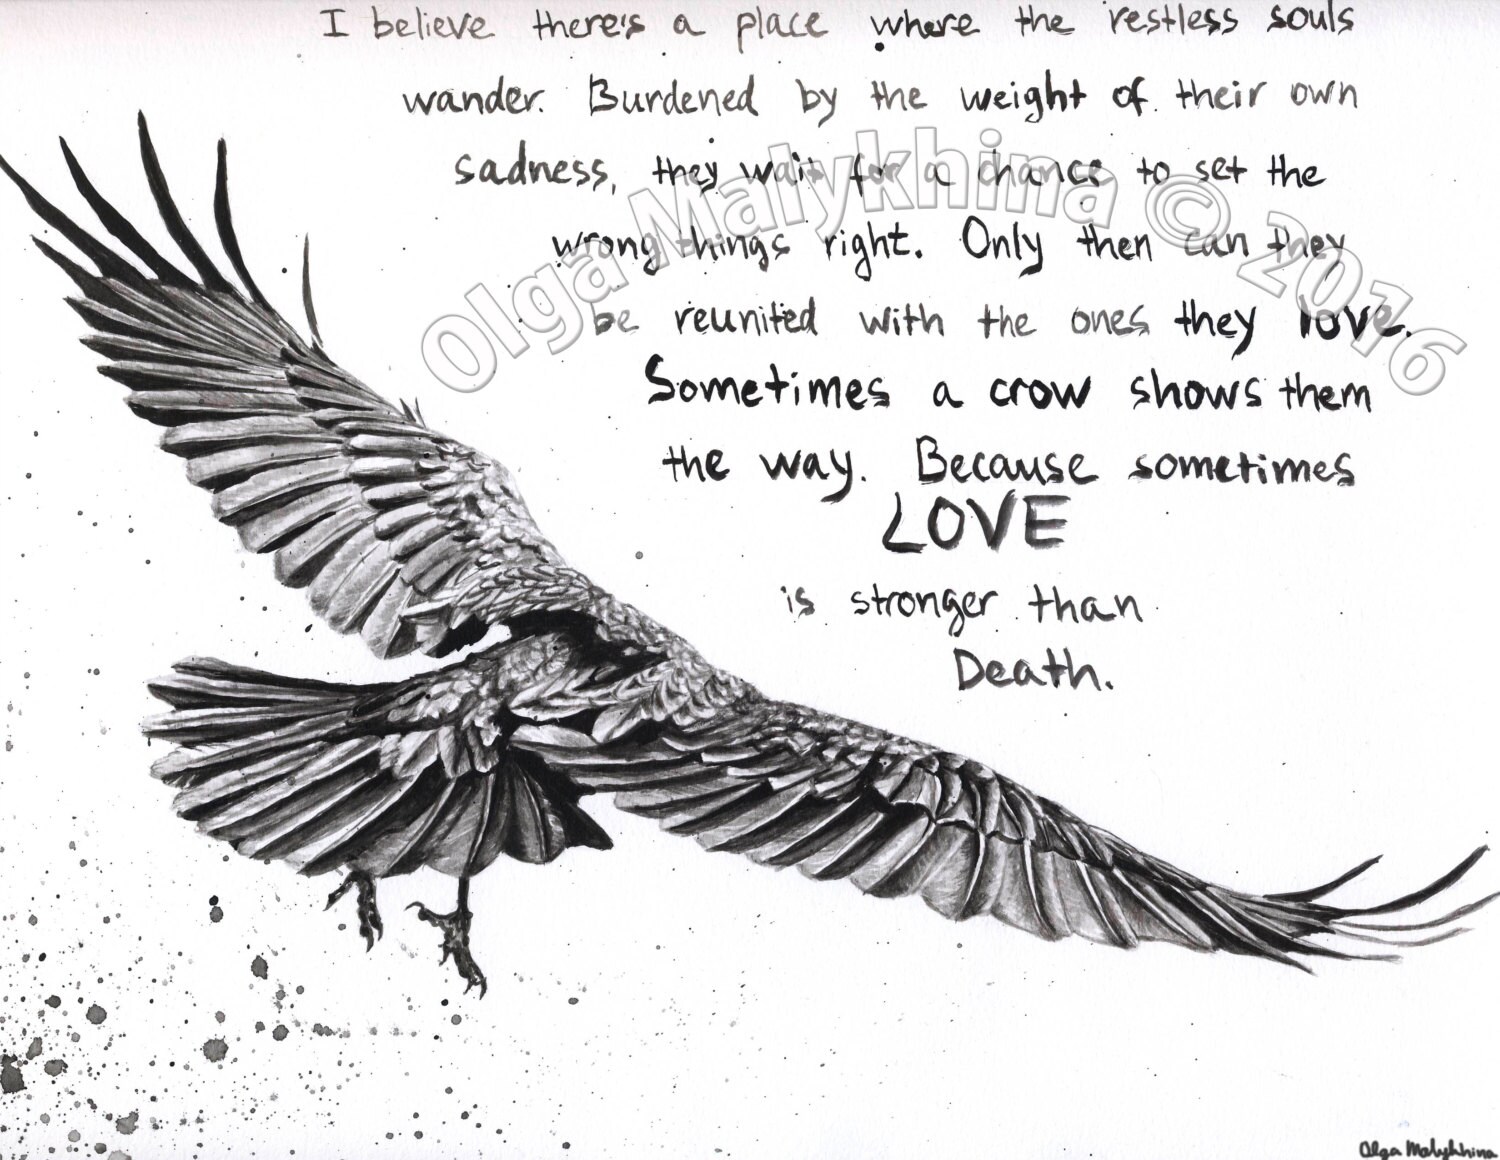 I believe there's a place where the restless souls
wander. Burdened by the weight of their own
sadness, they wait for a chance to set the
wrong things right. Only then can they
be reunited with the ones they love.
Sometimes a crow shows them
the way. Because sometimes
LOVE
is stronger than
Death.
Olga Malykhina © 2016
Olga Malykhina